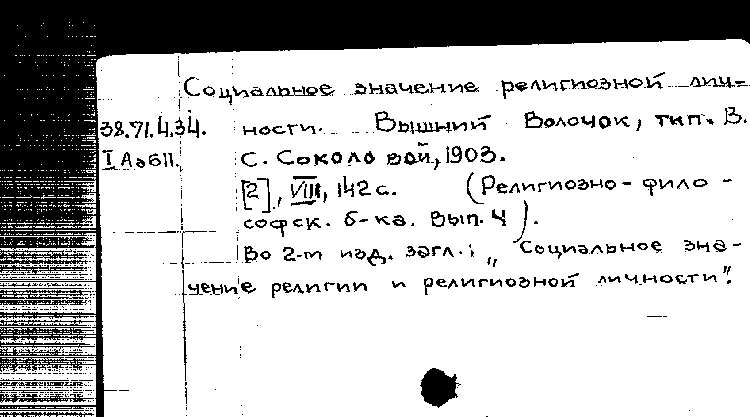 Социальное значение религиозной лич-
38.71.4.34. ности. Вышний Волочок, тип. В.
I Аэ611. С. Соколовой, 1903.
[2], VIII, 142 с. (Религиозно-фило-
софск. б-ка. Вып. 4).
Во 2-м изд. загл.: „Социальное зна-
чение религии и религиозной личности".